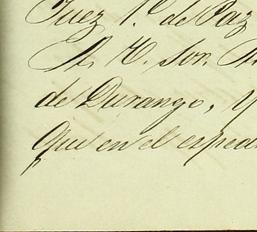 Juez 1.º de Paz
A. H. Son. A
de Durango, y
que en el espedi